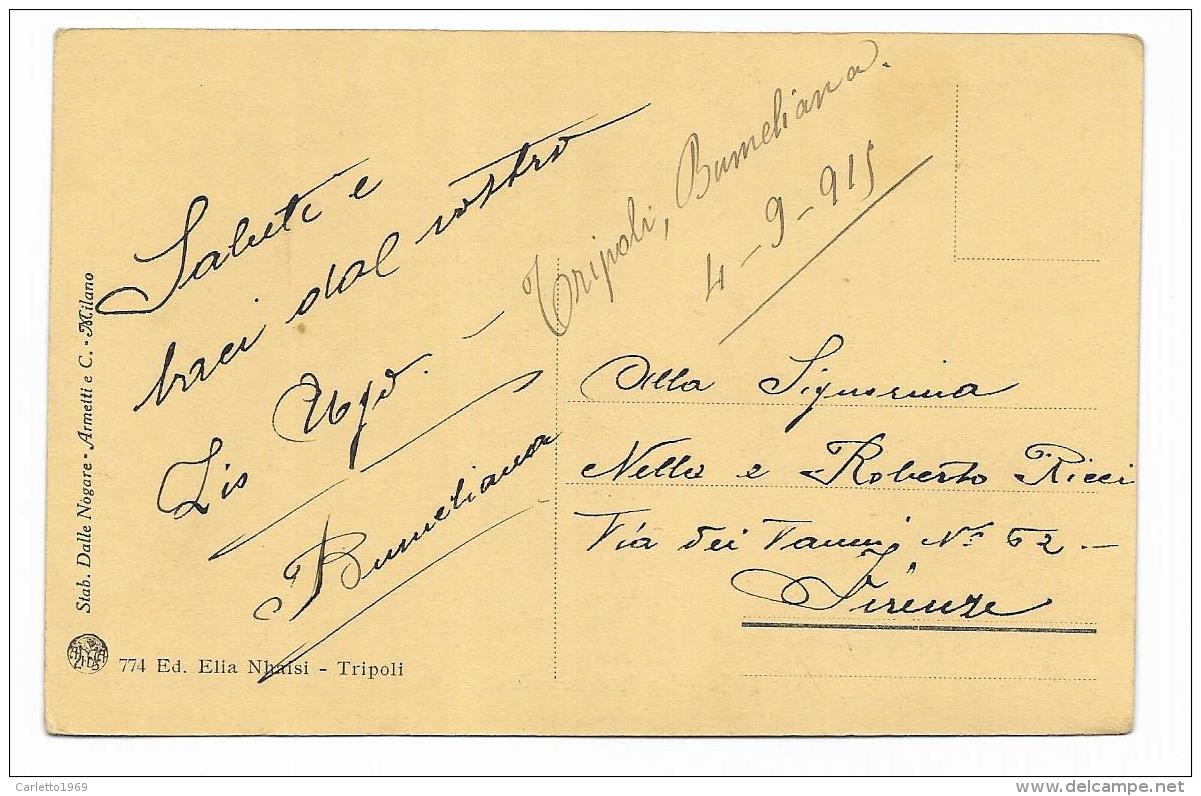 Tripoli, Bumeliana.
4-9-915
Saluti e
baci dal vostro
Zio Ugo. —
Bumeliana
Alla Signorina
Nella e Roberto Ricci
Via dei Vanni, No 62 —
Firenze
Stab. Dalle Nogare - Armetti e C. - Milano
774 Ed. Elia Nhaisi - Tripoli
Carletto1969
delcampe.net